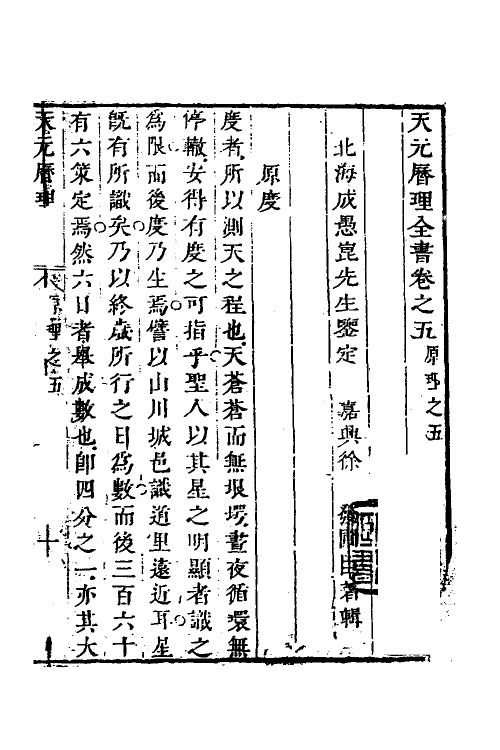 天元曆理全書卷之五 原理之五
北海成愚崑先生鑒定 嘉興徐 著輯
原度
度者所以測天之程也天蒼蒼而無垠堮晝夜循環無
停轍安得有度之可指乎聖人以其星之明顯者識之
為限而後度乃生焉譬以山川城邑識道里遠近耳星
旣有所識矣乃以終歲所行之日為數而後三百六十
有六策定焉然六日者舉成數也卽四分之一亦其大
天元曆理 原理之五 十